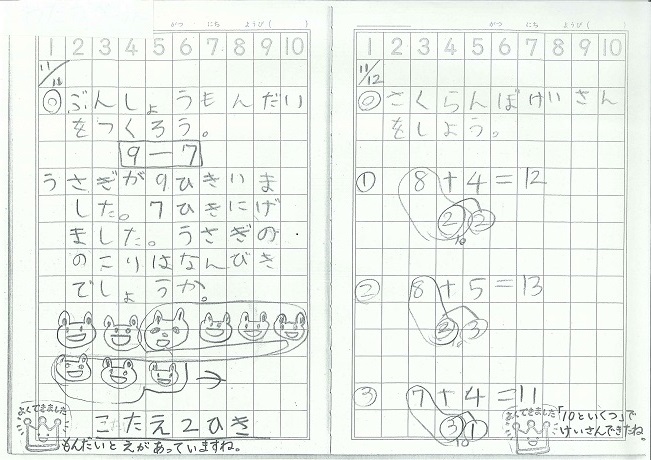 がつ にち ようび( )
1 2 3 4 5 6 7 8 9 10
11/11
◎ ぶんしょうもんだい
をつくろう。
9-7
うさぎが9ひきいま
した。7ひきにげ
ました。うさぎの
のこりはなんびき
でしょうか。
こたえ2ひき
よくできました
もんだいとえがあっていますね。
がつ にち ようび( )
1 2 3 4 5 6 7 8 9 10
11/12
◎ さくらんぼけいさん
をしよう。
① 8+4=12
② ②
10
② 8+5=13
② ③
10
③ 7+4=11
③ ①
10
よくできました
「10といくつ」で
けいさんできたね。